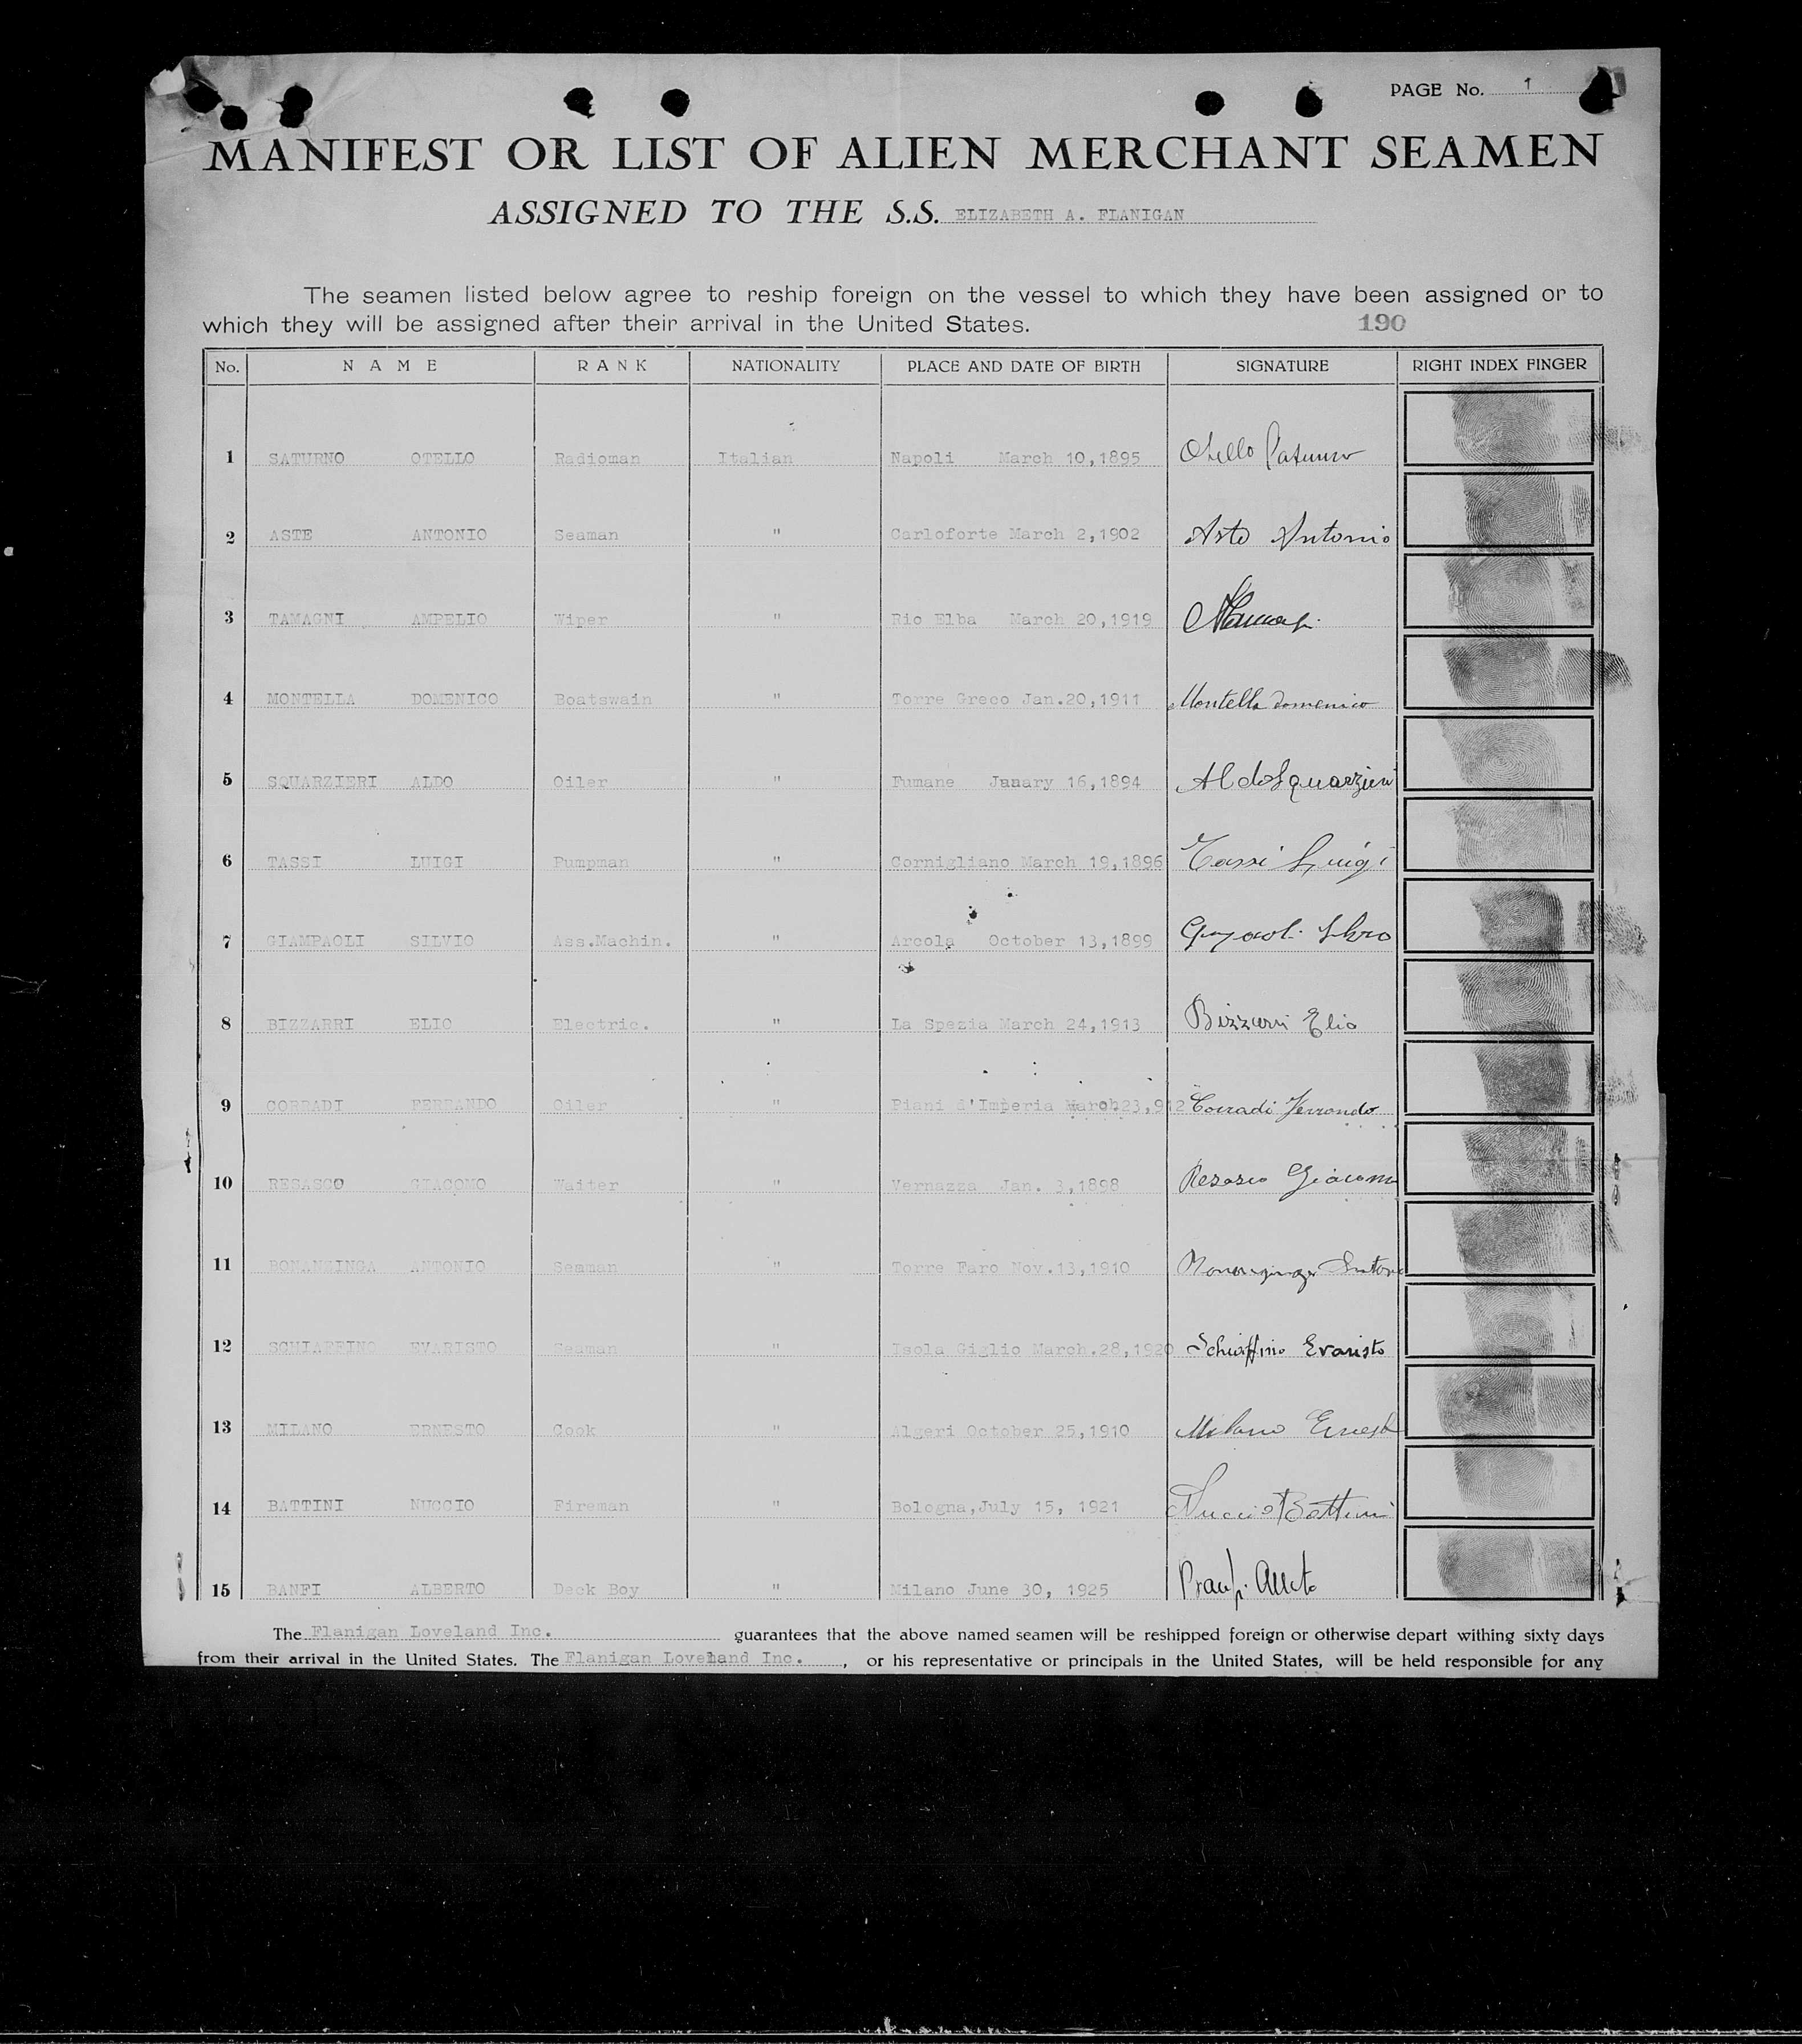 PAGE No. 1
MANIFEST OR LIST OF ALIEN MERCHANT SEAMEN
ASSIGNED TO THE S.S. ELIZABETH A. FLANIGAN
The seamen listed below agree to reship foreign on the vessel to which they have been assigned or to
which they will be assigned after their arrival in the United States. 190
No. NAME RANK NATIONALITY PLACE AND DATE OF BIRTH SIGNATURE RIGHT INDEX FINGER
1 SATURNO OTELLO Radioman Italian Napoli March 10,1895 Otello Saturno
2 ASTE ANTONIO Seaman " Carloforte March 2,1902 Aste Antonio
3 TAMAGNI AMPELIO Wiper " Rio Elba March 20,1919
4 MONTELLA DOMENICO Boatswain " Torre Greco Jan.20,1911 Montella Domenico
5 SQUARZIERI ALDO Oiler " Fumane January 16,1894 Aldo Squarzieri
6 TASSI LUIGI Pumpman " Cornigliano March 19,1896 Tassi Luigi
7 GIAMPAOLI SILVIO Ass.Machin. " Arcola October 13,1899
8 BIZZARRI ELIO Electric. " La Spezia March 24,1913 Bizzarri Elio
9 CORRADI FERRANDO Oiler " Piani d'Imperia March23,912 Corradi Ferrando
10 RESASCO GIACOMO Waiter " Vernazza Jan. 3,1898 Resasco Giacomo
11 BONANZINGA ANTONIO Seaman " Torre Faro Nov.13,1910 Bonanzinga Antonio
12 SCHIAFFINO EVARISTO Seaman " Isola Giglio March.28,1920 Schiaffino Evaristo
13 MILANO ERNESTO Cook " Algeri October 25,1910 Milano Ernesto
14 BATTINI NUCCIO Fireman " Bologna,July 15, 1921 Nuccio Battini
15 BANFI ALBERTO Deck Boy " Milano June 30, 1925 Banfi Alberto
The Flanigan Loveland Inc. guarantees that the above named seamen will be reshipped foreign or otherwise depart withing sixty days
from their arrival in the United States. The Flanigan Loveland Inc. , or his representative or principals in the United States, will be held responsible for any